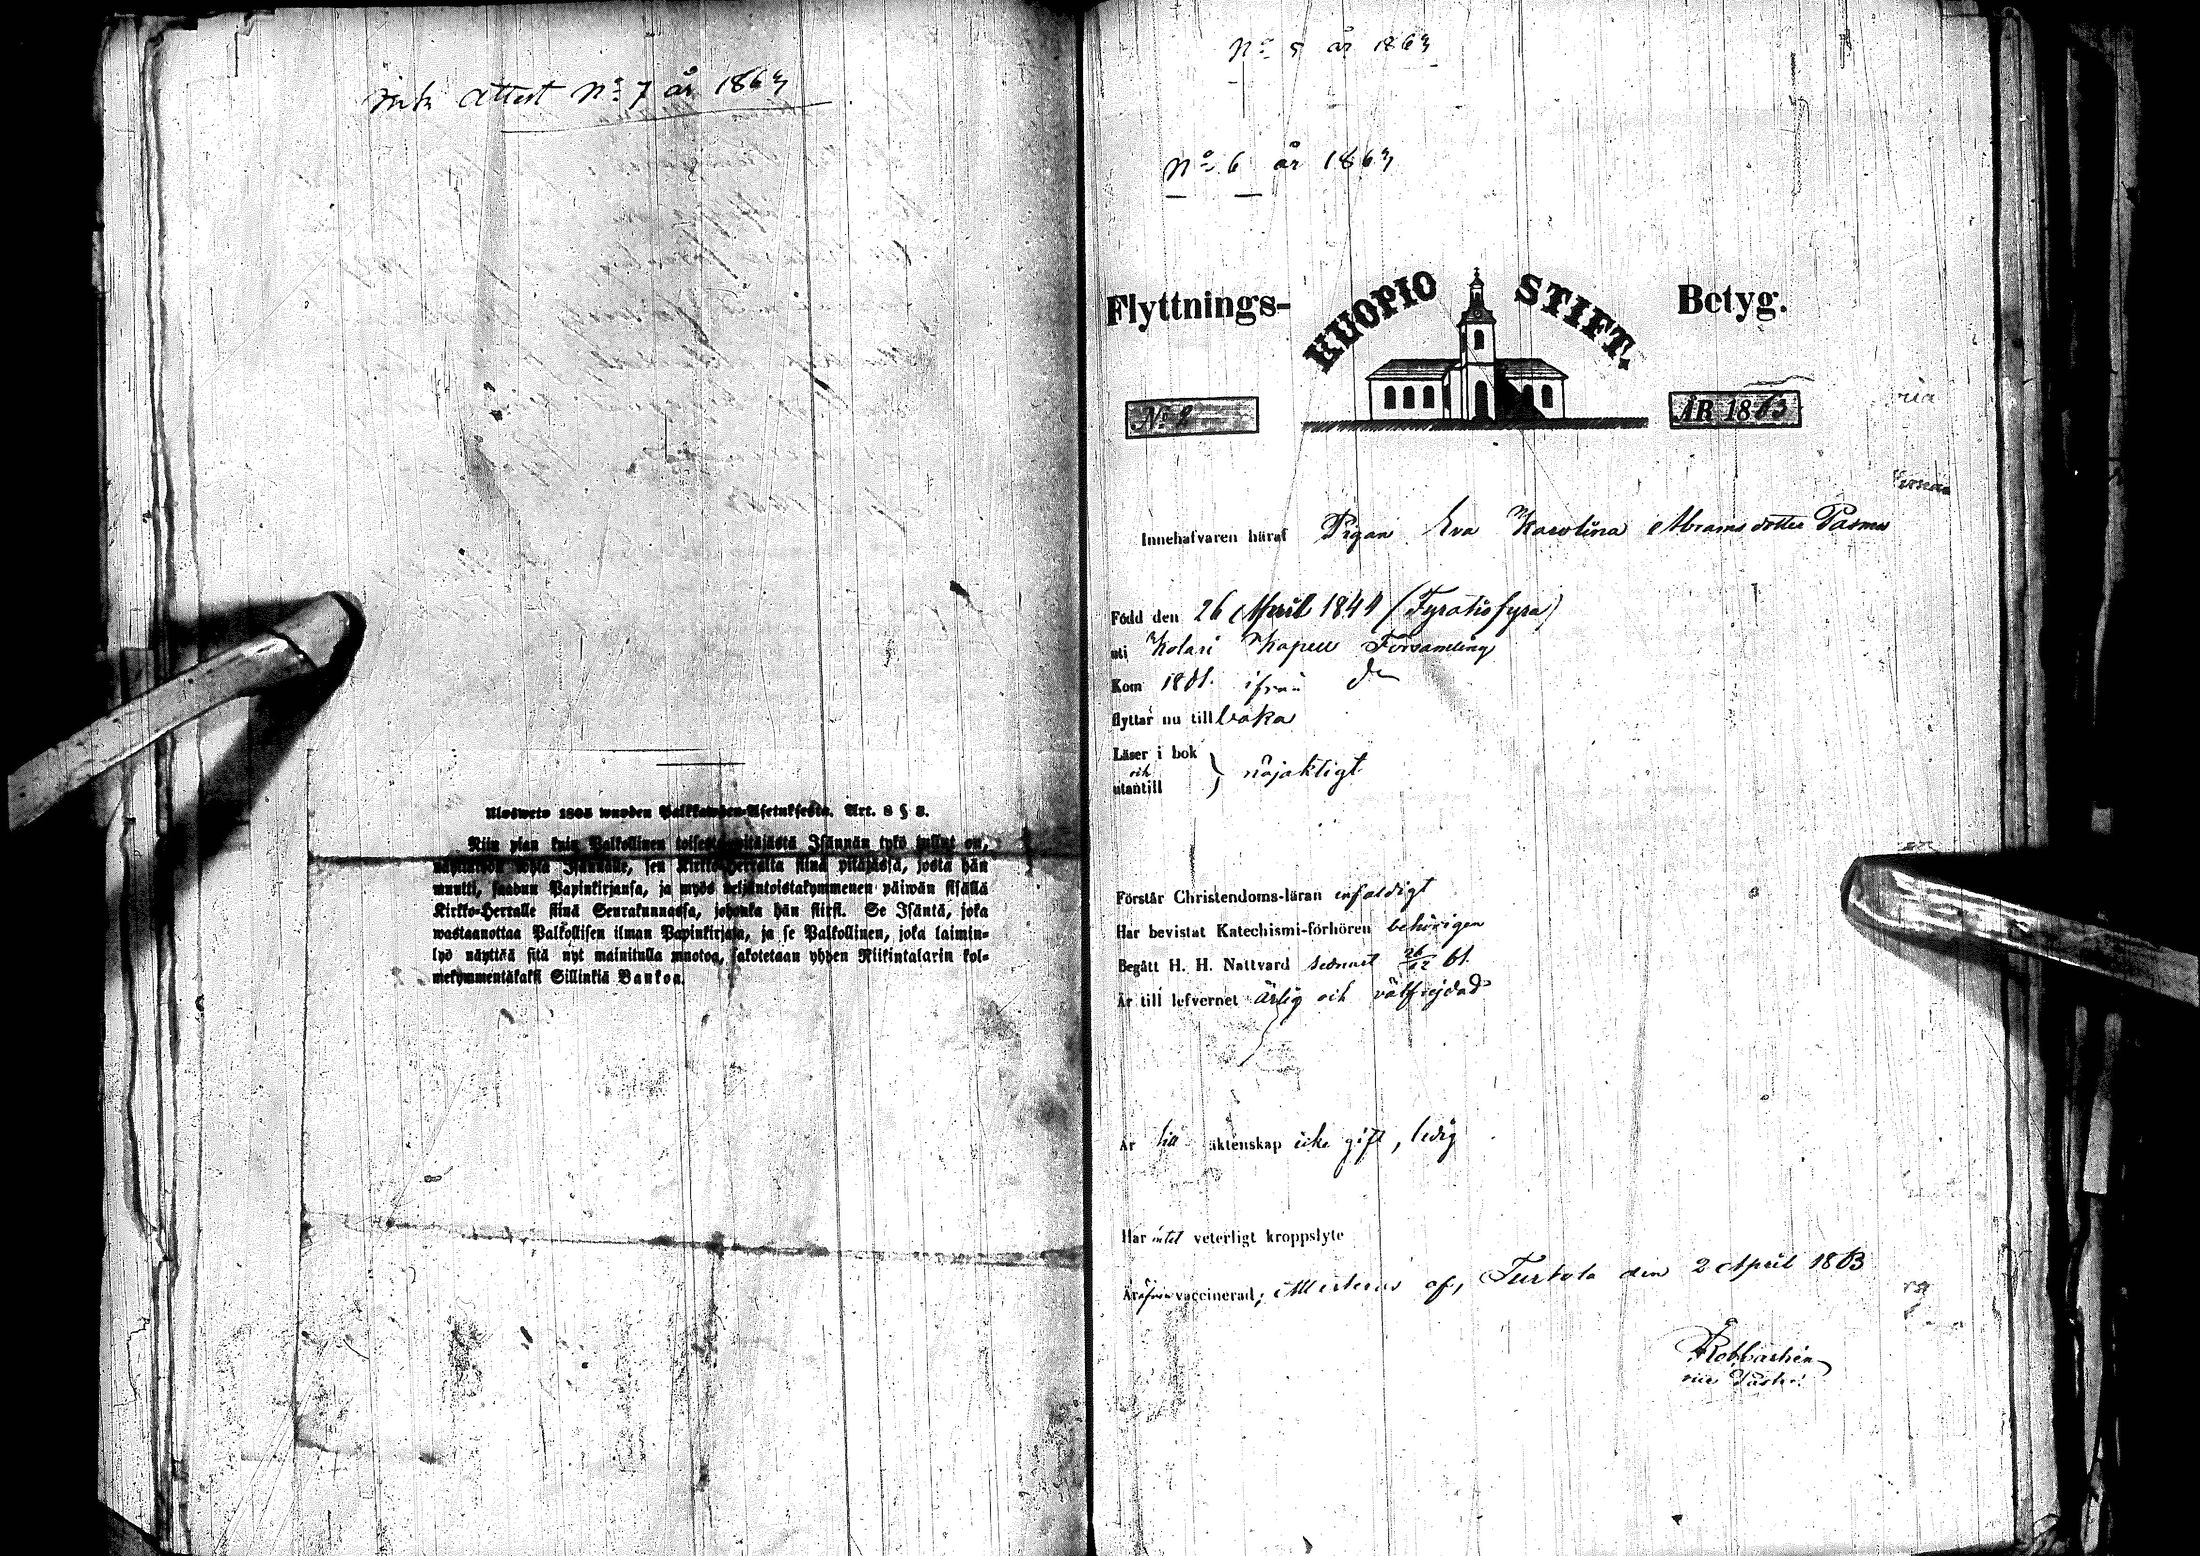 Attest Nº 7 år 1863
Ulosweto 1805 wuoden Palkkawäen-Asetuksesta. Art. 8 § 3.
Niin pian kuin Palkollinen toisesta pitäjästä Isännän tykö tullut on,
näyttäköön Isännälle, sen Kirkko-Herralta siinä pitäjässä, josta hän
muutti, saadun Papinkirjansa, ja myös neljäntoistakymmenen päiwän sisällä
Kirkko-Herralle siinä Seurakunnassa, johonka hän siirsi. Se Isäntä, joka
wastaanottaa Palkollisen ilman Papinkirjata, ja se Palkollinen, joka laimin-
lyö näyttää sitä nyt mainitulla muotoa, sakotetaan yhden Riikintalarin kol-
mekymmentäkaksi Sillinkiä Bankoa.
Nº 5 år 1863
Nº 6 år 1863
Flyttnings- KUOPIO STIFT. Betyg.
Nº 2 ÅR 1863
Innehafvaren häraf Pigan Eva Karolina Abramsdotter
Född den 26 April 1844 (Fyratiofyra)
uti Kolari Kapell Församling
Kom 1861 ifrån
flyttar nu tillbaka
Läser i bok
och } nöjaktigt
utantill
Förstår Christendoms-läran enfaldigt
Har bevistat Katechismi-förhören behörigen
Begått H. H. Nattvard sednast 26/12 61.
Är till lefvernet ärlig och välfrejdad
Är till äktenskap icke gift, ledig
Har intet veterligt kroppslyte
Är äfven vaccinerad; Attesteras af, Turtola den 2 April 1863